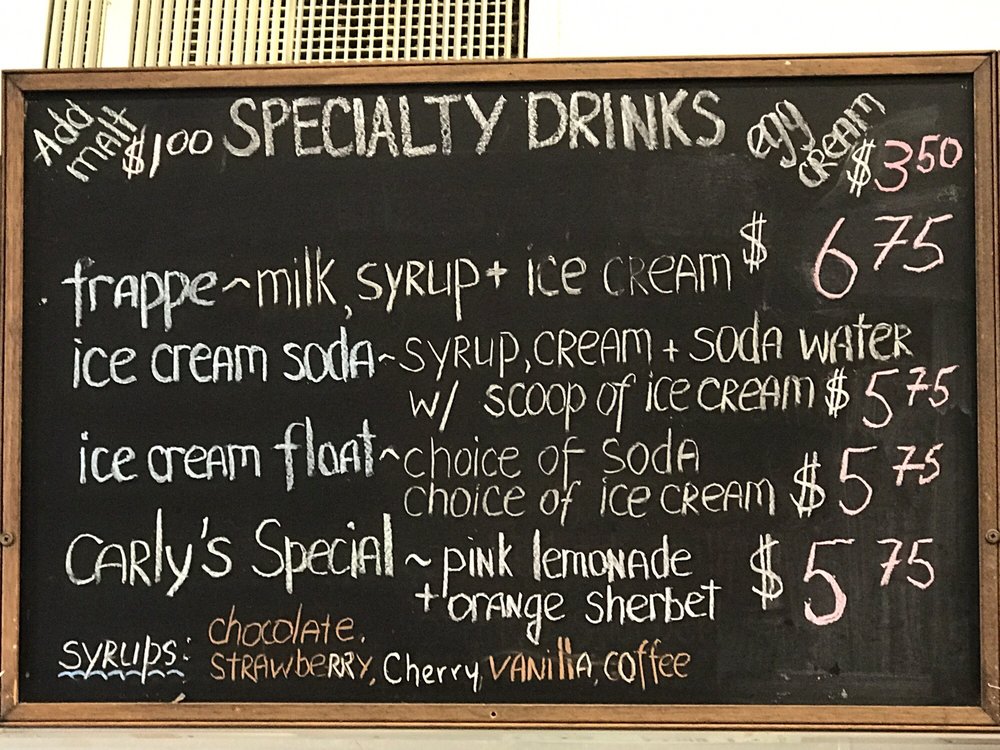 Add malt $1.00
SPECIALTY DRINKS
egg cream $3.50
frappe ~ milk, syrup + ice cream $6.75
ice cream soda ~ syrup, cream + soda water
w/ scoop of ice cream $5.75
ice cream float ~ choice of soda
choice of ice cream $5.75
Carly's Special ~ pink lemonade
+ orange sherbet $5.75
syrups: chocolate,
strawberry, Cherry, vanilla, coffee